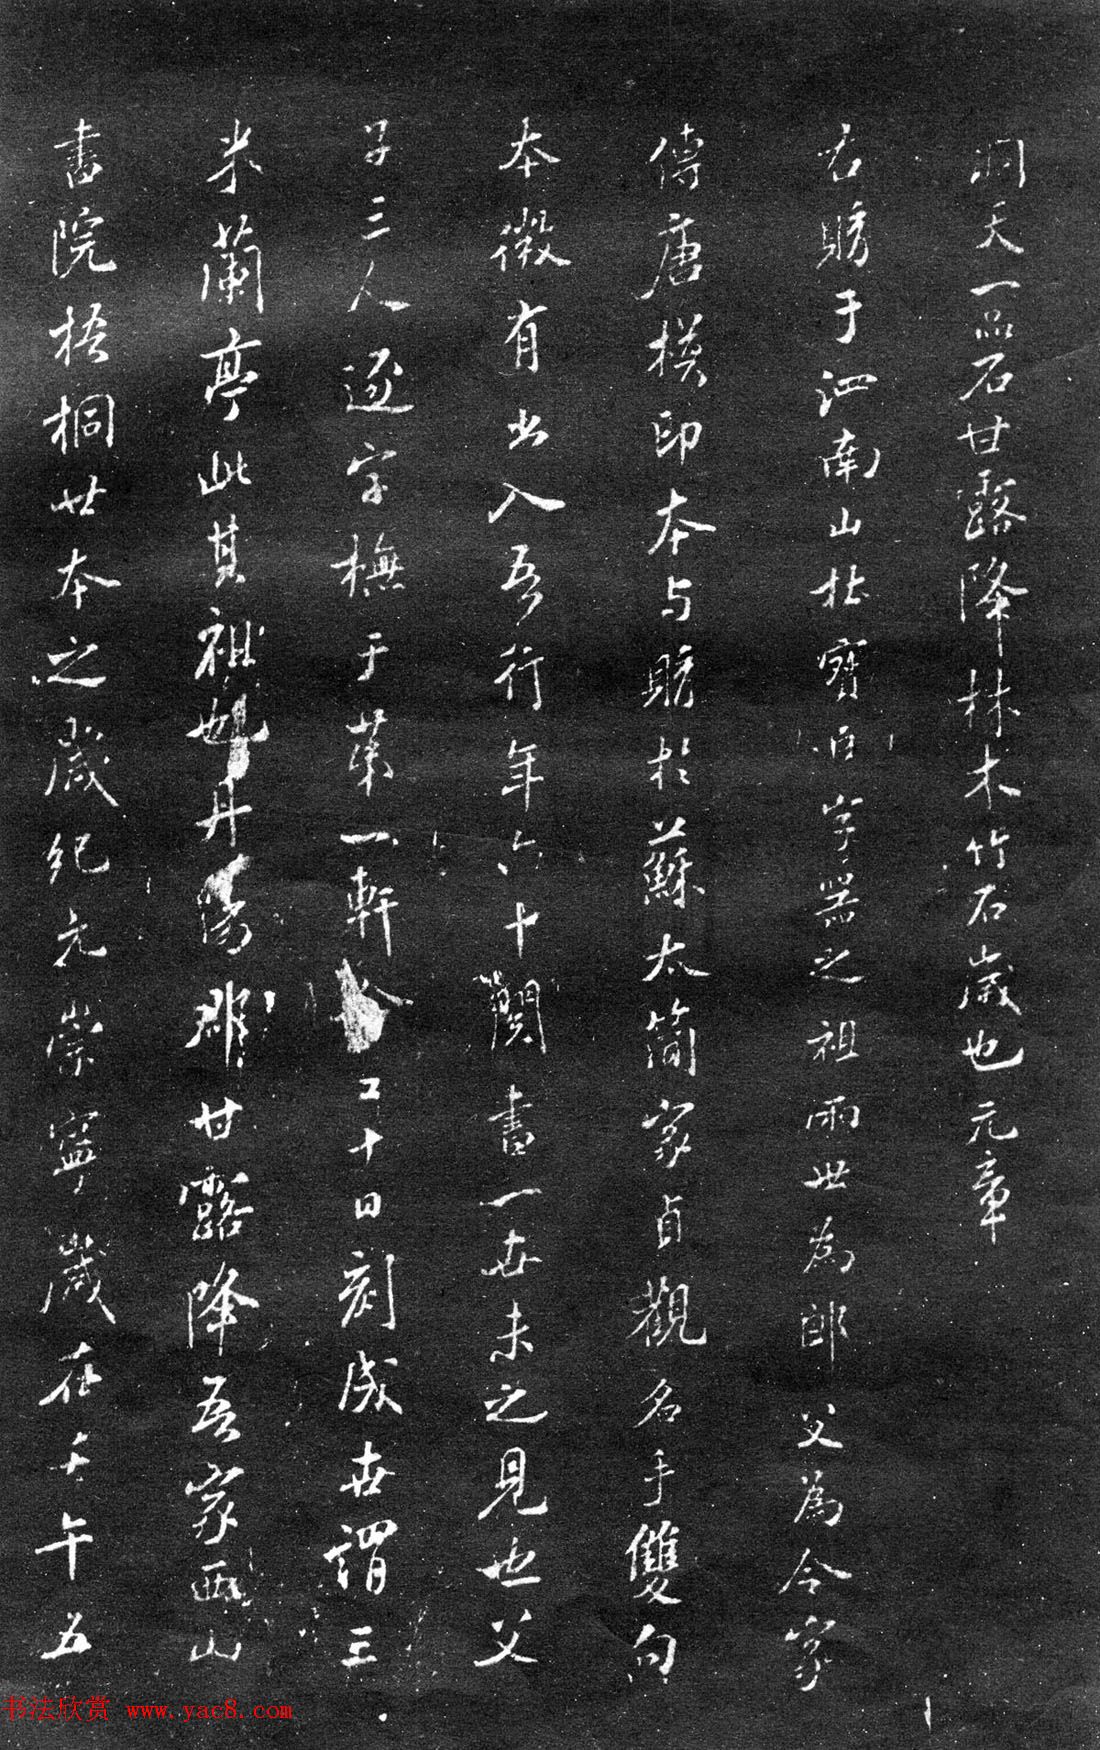 洞天一品石甘露降林木竹石歲也元章
右購于泗南山杜寶臣字器之祖兩世為郎父為令家
傳唐模印本与購於蘇太簡家貞觀名手雙向
本微有出入吾行年六十閱書一世未之見也父
子三人逐字橅于苐一軒 二十日刻成世謂三
米蘭亭此其祖也丹陽郡甘露降吾家西山
書院梧桐廿本之歲紀元崇寧歲在壬午五
书法欣赏 www.yac8.com